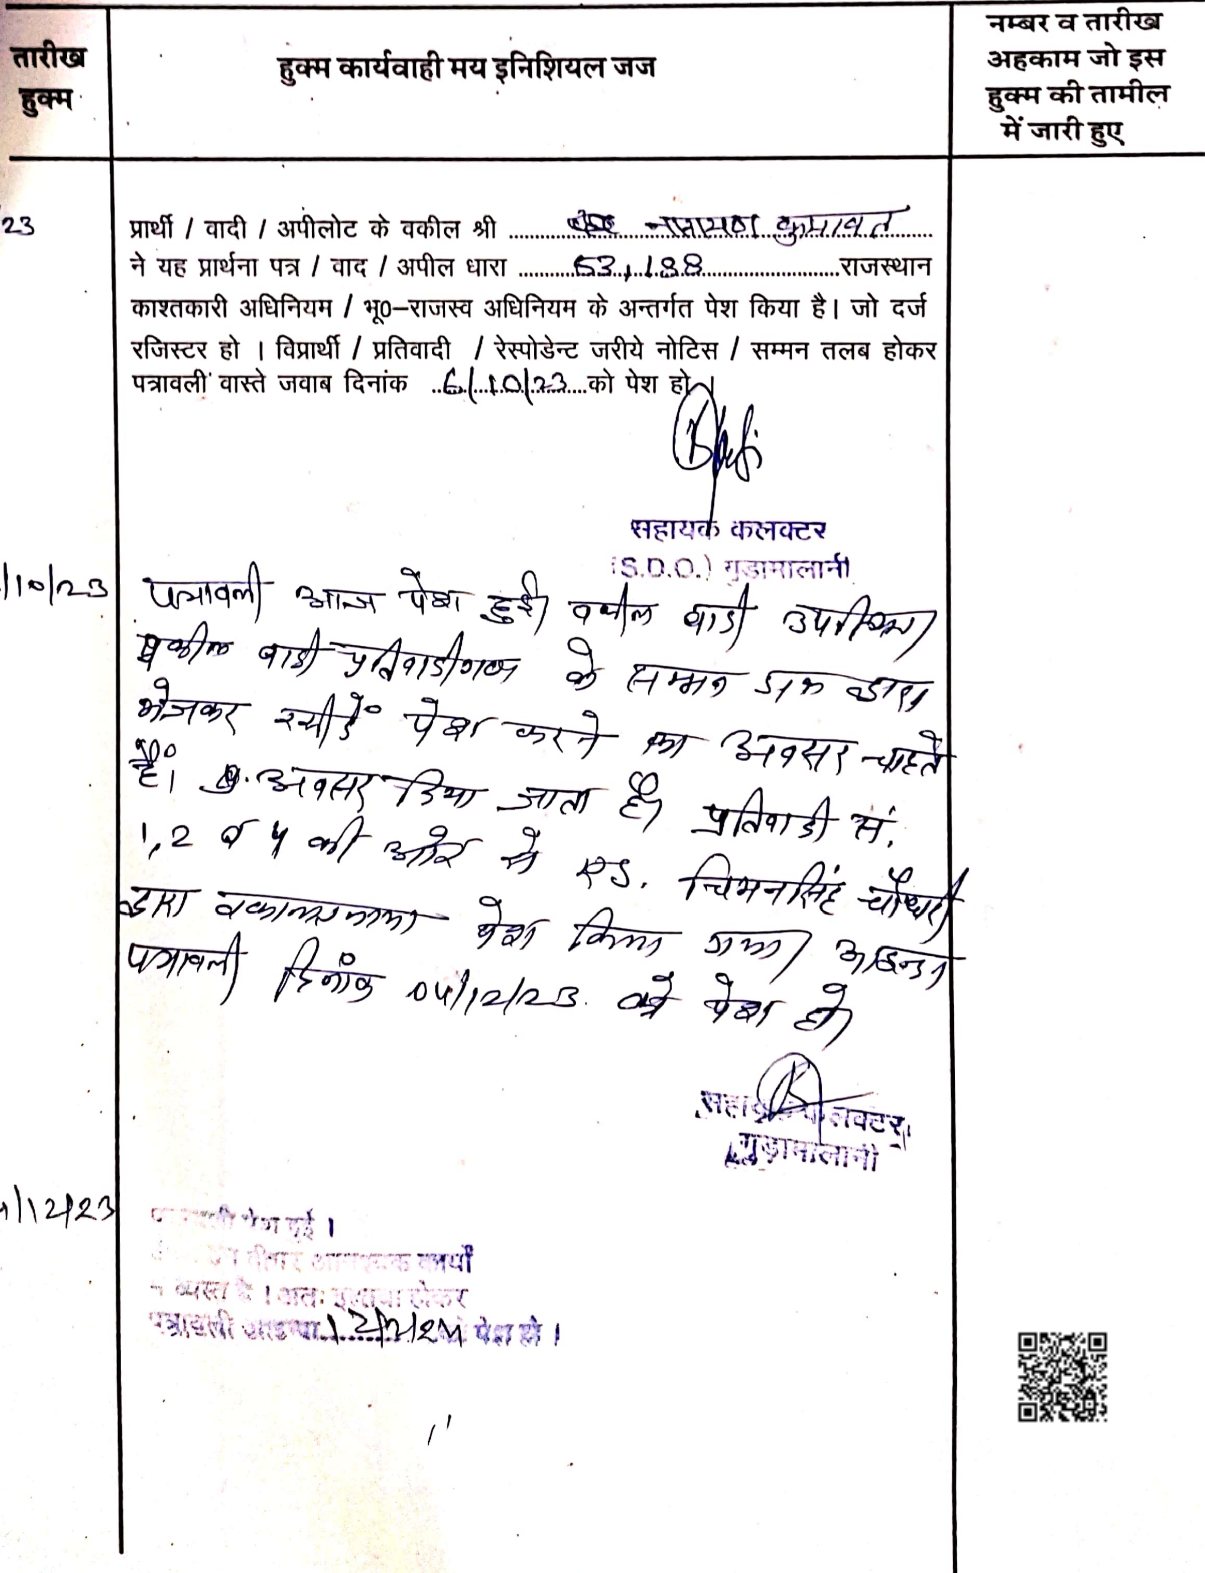 तारीख
हुक्म
हुक्म कार्यवाही मय इनिशियल जज
नम्बर व तारीख
अहकाम जो इस
हुक्म की तामील
में जारी हुए
23
प्रार्थी / वादी / अपीलोट के वकील श्री नारायण कुमावत
ने यह प्रार्थना पत्र / वाद / अपील धारा 53,188 राजस्थान
काश्तकारी अधिनियम / भू0–राजस्व अधिनियम के अन्तर्गत पेश किया है। जो दर्ज
रजिस्टर हो । विप्रार्थी / प्रतिवादी / रेस्पोडेन्ट जरीये नोटिस / सम्मन तलब होकर
पत्रावली वास्ते जवाब दिनांक 6/10/23 को पेश हो
सहायक कलक्टर
(S.D.O.) गुड़ामालानी
/10/23
पत्रावली आज पेश हुई। वकील वादी उपस्थित।
वकील वादी प्रतिवादीगण के सम्मन डाक द्वारा
भेजकर रसीदें पेश करने का अवसर चाहते
हैं। अवसर दिया जाता है। प्रतिवादी सं.
1,2 व 4 की ओर से एड. चिमनसिंह चौधरी
द्वारा वकालतनामा पेश किया गया।
पत्रावली दिनांक 04/12/23 को पेश हो।
सहायक कलक्टर
गुड़ामालानी
/12/23
पेश हुई ।
कार्यों
व्यस्त है । अतः होकर
पत्रावली पेश हो ।